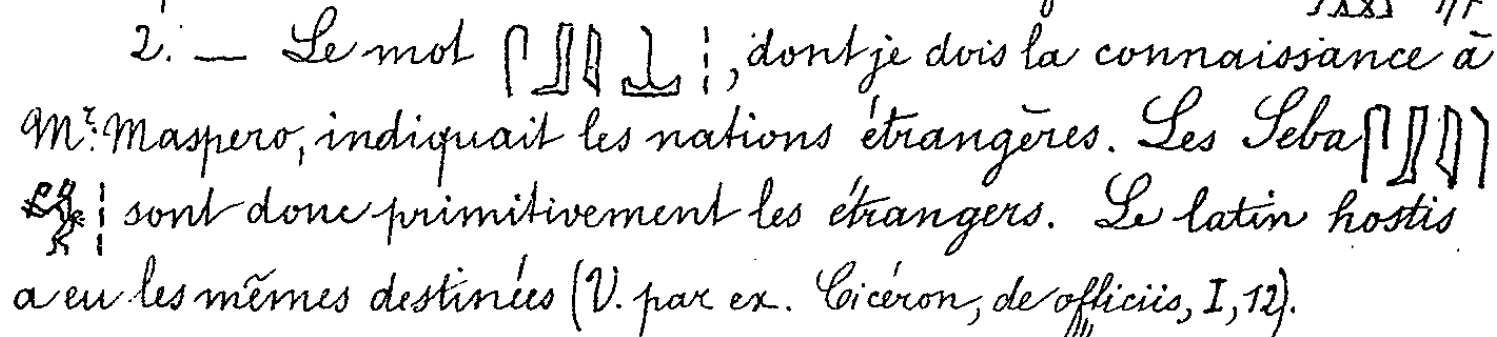 2. — Le mot 𓋴𓃀𓇋 𓊛 ¦, dont je dois la connaissance à
Mr. Maspero, indiquait les nations étrangères. Les Seba 𓋴𓃀𓇋
¦ sont donc primitivement les étrangers. Le latin hostis
a eu les mêmes destinées (V. par ex. Cicéron, de officiis, I, 12).